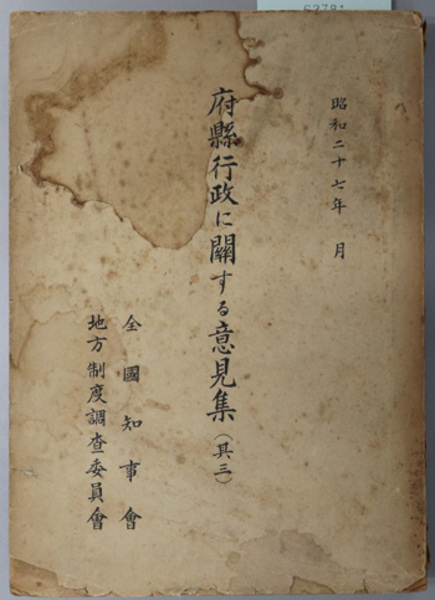 昭和二十七年　月
府縣行政に關する意見集（其三）
全國知事會
地方制度調査委員會